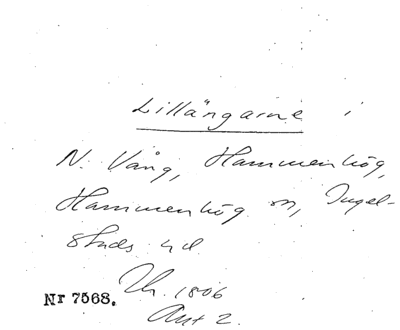 Lillängarne i
N. Vång, Hammenhög,
Hammenhög sn, Ingel-
stads hd
Nr 7568. 1806
Akt 2.